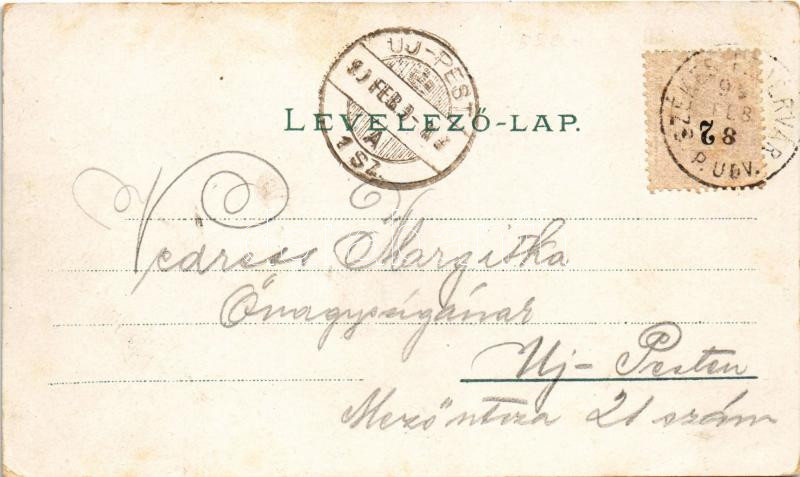 UJ-PEST
FEB
A
1 SZ.
SZÉKESFEHÉRVÁR
FEB
P. UDV.
LEVELEZŐ-LAP.
Vedress Margitka
Őnagyságának
Uj-Pesten
Mező utcza 21 szám